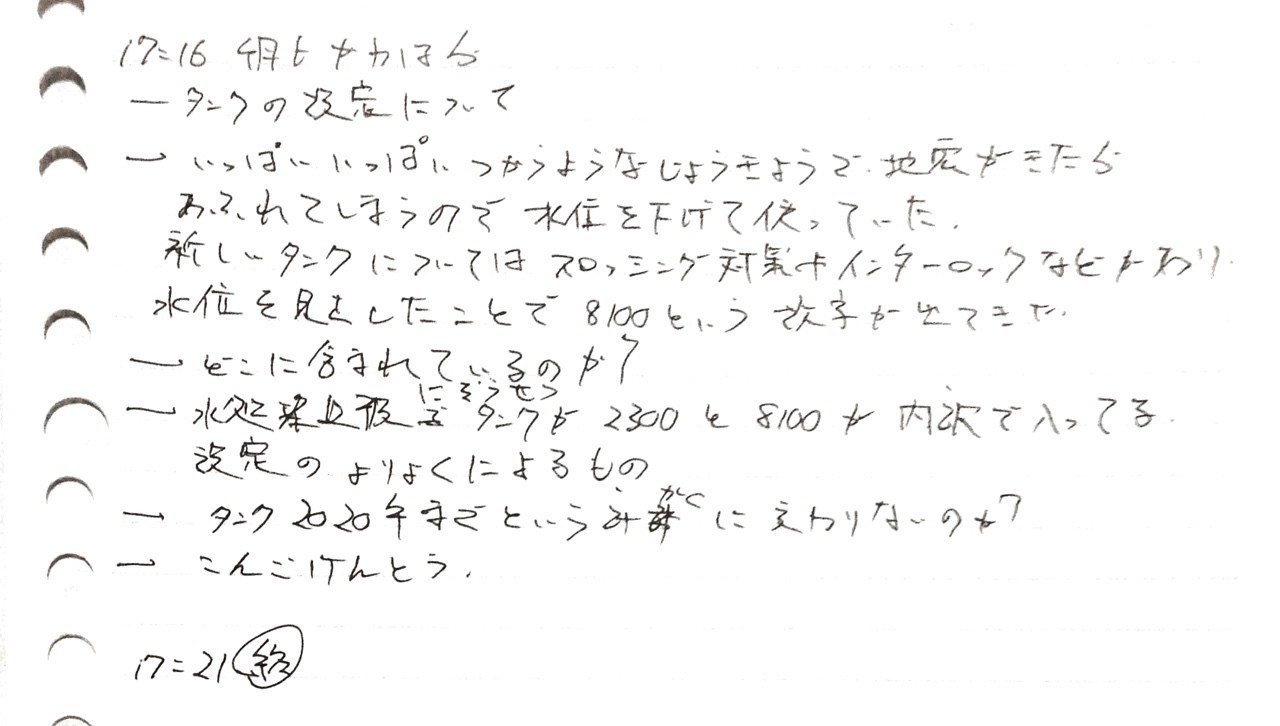 17=16 朝日 かわはら
ー タンクの設定について
ー いっぱいいっぱいつかうようなじょうきょうで地震がきたら
あふれてしまうので水位を下げて使っていた.
新しいタンクについてはスロッシング対策やインターロックなどがあり
水位を見直したことで8100という数字が出てきた.
ー どこに含まれているのか?
ー 水処理 にぞうせつ タンクが2300と8100が内訳で入ってる.
設定のよりょくによるもの
ー タンク2020年までという計かくに変わりないのか?
ー こんごけんとう.
17=21 終